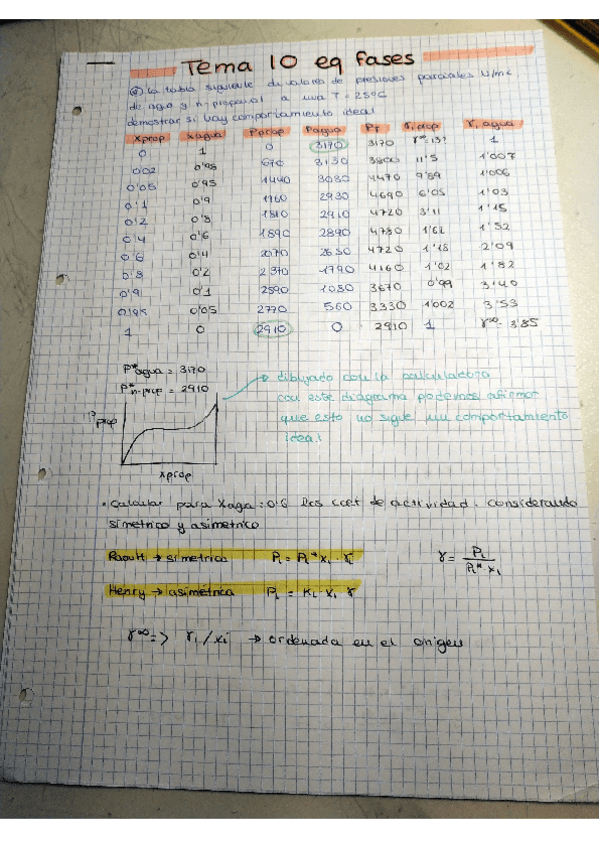 Tema 10 eq fases
a) La tabla siguiente da valores de presiones parciales N/m²
de agua y n-propanol a una T = 25ºC
demostrar si hay comportamiento ideal
Xprop Xagua Pprop Pagua PT γ, prop γ, agua
0 1 0 3170 3170 γ∞=13? 1
0'02 0'98 670 3130 3800 11'5 1'007
0'05 0'95 1440 3030 4470 9'89 1'006
0'1 0'9 1760 2930 4690 6'05 1'03
0'2 0'8 1810 2910 4720 3'11 1'15
0'4 0'6 1890 2890 4780 1'62 1'52
0'6 0'4 2070 2650 4720 1'18 2'09
0'8 0'2 2370 1790 4160 1'02 1'82
0'9 0'1 2590 1080 3670 0'99 3'40
0'95 0'05 2770 560 3330 1'002 3'53
1 0 2910 0 2910 1 γ∞= 3'85
P*agua = 3170
P*n-prop = 2910
→ dibujado con la calculadora
con este diagrama podemos afirmar
que esto no sigue un comportamiento
ideal
Pprop
xprop
• Calcular para Xagua: 0'6 los coef de actividad. considerando
simetrico y asimetrico
Raoult → simetrica Pi = Pi* xi · γi
γ = Pi / Pi* · xi
Henry → asimétrica Pi = Ki · xi · γ
γ∞ => γi / xi → ordenada en el origen